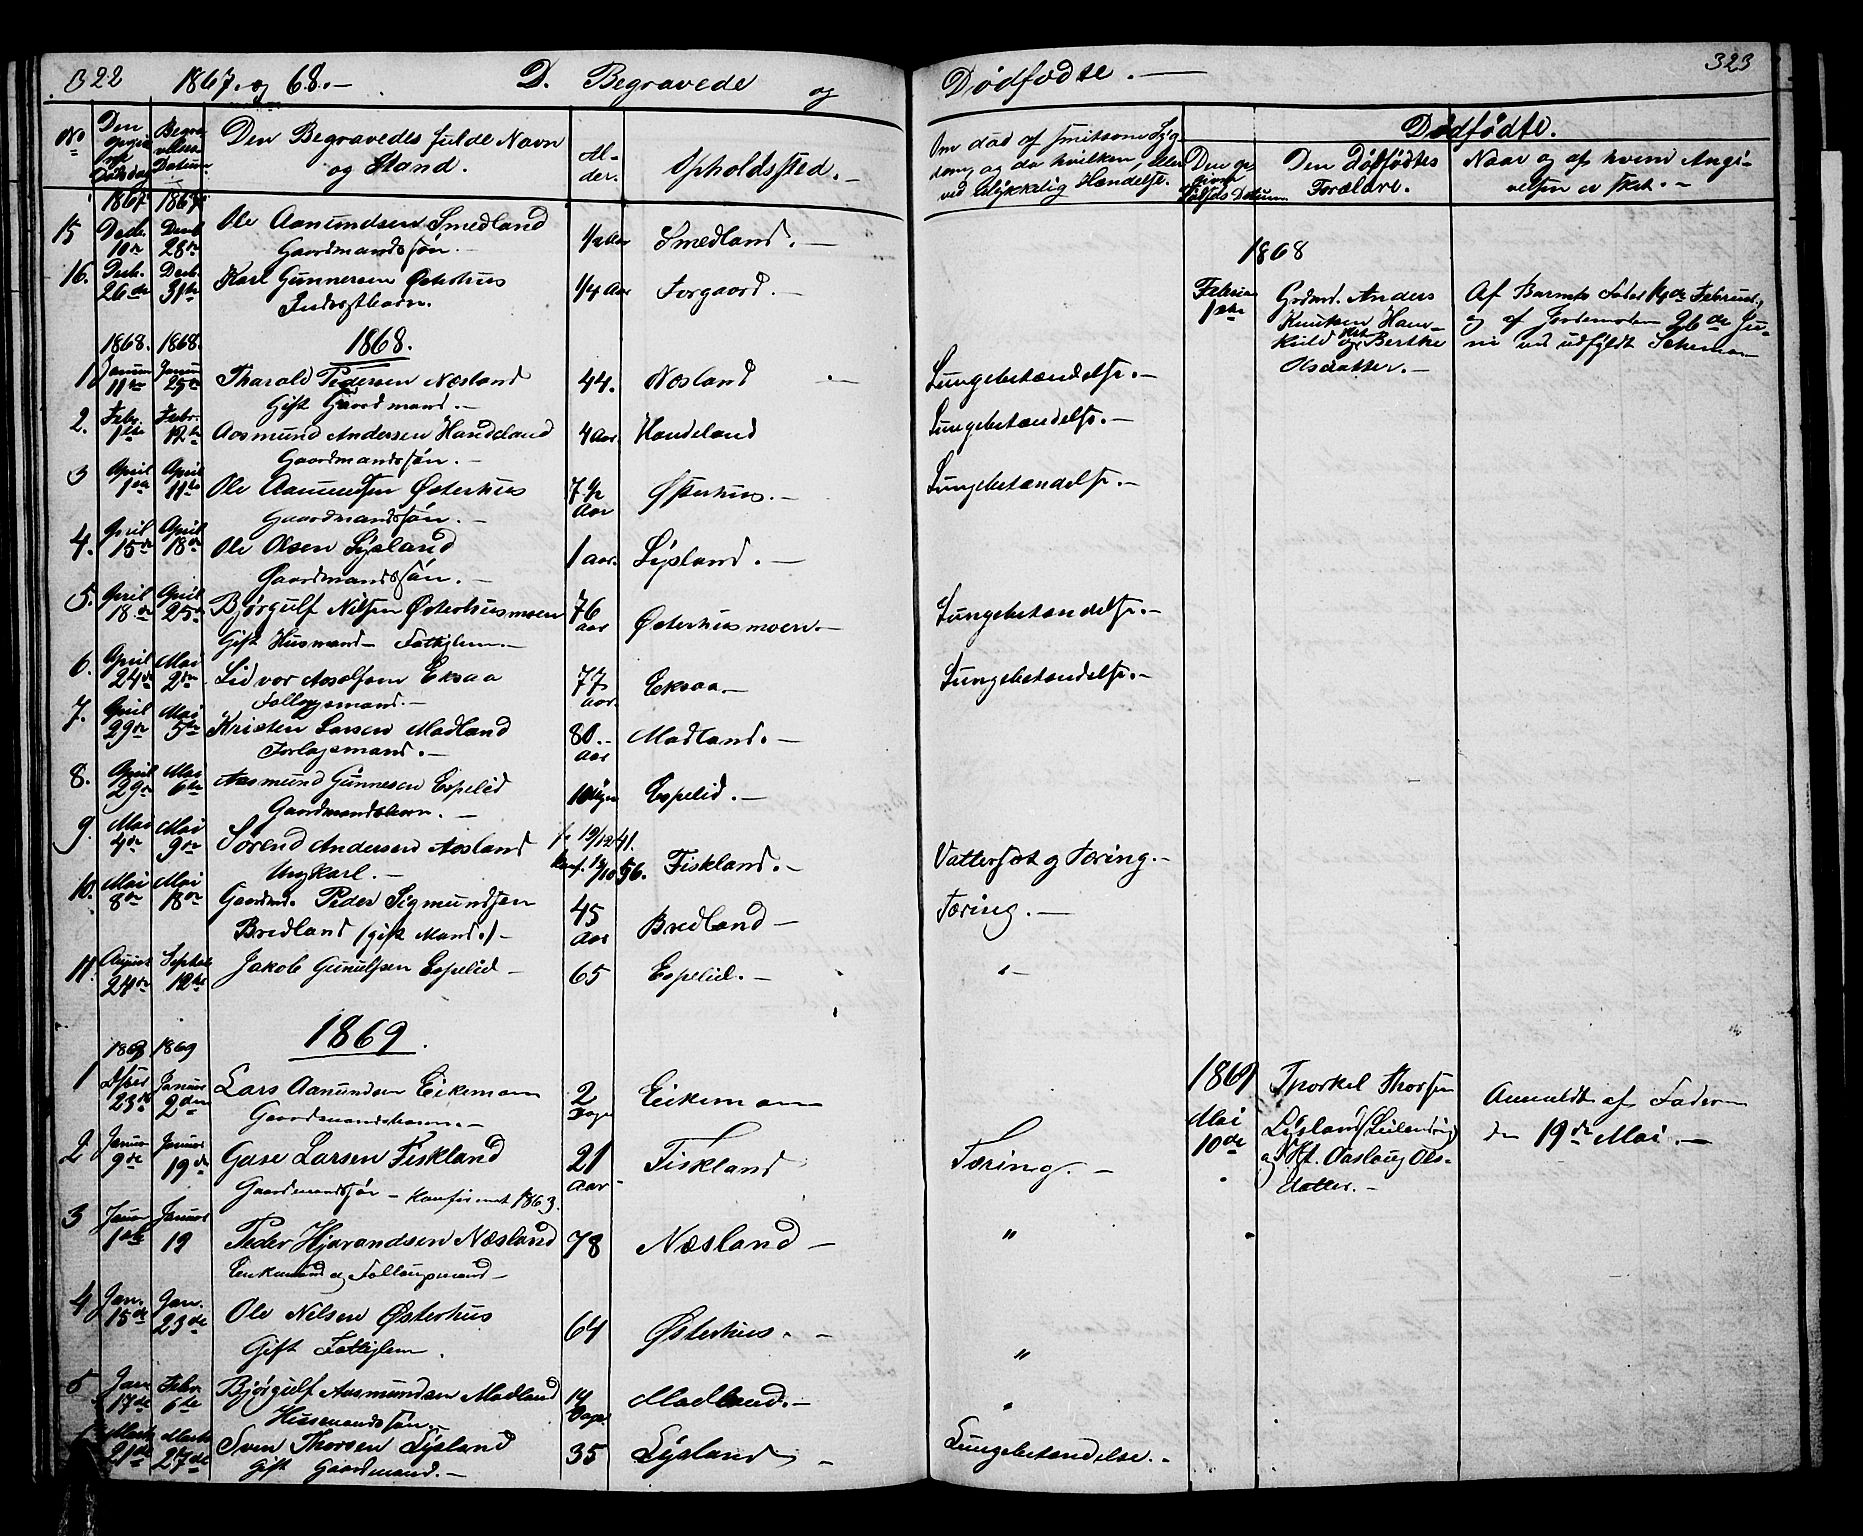 322 1867. og 68. — D. Begravede og
Dødfødte. — 323
No
Den opgivne Dødsdag
Begravelses Datum
Den Begravedes fulde Navn og Stand.
Alder.
Opholdssted. —
Om død af smitsom Syg-
dom, og da hvilken, eller
ved ulykkelig Hændelse.
Dødfødte.
Den Dødfødtes
Forældre.
Naar og af hvem Angi-
velsen er sket. —
1867 1867
15 Decb. 10de Decb. 28de Ole Aanundsen Smedland 1/2 Aar Smedland. —
Gaardmandssøn. —
16. Decb. 26de Decb. 31te Karl Gunnersen Østerhus 1/4 Aar Forgaard. —
Inderstbarn.
1868. 1868. 1868.
1 Januar 11te Januar 25de Tharald Pedersen Næsland 44. Næsland — Lungebetændelse. —
Gift Gaardmand. —
2. Febr. 1ste Febr. 12te Aasmund Andersen Handeland 4 Aar. Handeland Lungebetændelse. —
Gaardmandssøn. —
3 April 1ste April 11te Ole Aanundsen Østerhus 7 1/2 Aar Østerhus. — Lungebetændelse. —
Gaardmandssøn. —
4. April 15de April 18de Ole Olsen Lysland 1 aar. Lysland. —
Gaardmandssøn. —
5. April 18de April 25de Bjørgulf Nilsen Østerhusmoen 76 aar Østerhusmoen. — Lungebetændelse. —
Gift Husmand — Fattiglem. —
6. April 24de Mai 2den Lidvor Aasolfsen Eksaa 77 aar. Eksaa — Lungebetændelse. —
Follogsmand. —
7. April 29de Mai 5te Kristen Larsen Madland 80. — Aar Madland. —
Forlagsmand. —
8. April 29de Mai 6te Aasmund Gunnesen Espelid 10 Uger Espelid. —
Gaardmandsbarn. —
9. Mai 4de Mai 9de Sørend Andersen Aasland f. 19/12 41. Konf. 12/10 56. Fiskland. — Vattersot og Tæring. —
Ungkarl. —
10. Mai 8de Mai 18de Gaardmd. Peder Sigmundsen 45 Aar Bredland — Tæring. —
Bredland (gift Mand.) —
11. August 24de Septbr 12te Jakob Gunulfsen Espelid — 65 Espelid. — " —
1868
Februar 1ste
Grdmd. Anders
Knutsen Haus-
kuld og Kst. Berthe
Olsdatter. —
Af Barnets Fader 14de Februar,
og af Jordemoder 26de Ju-
ni ved udfyldt Schema —
1869.
1868 1869
1 Dcbr 23de Januar 2den Lars Aanundsen Eikemoen 2 Dage Eikemoen
Gaardmandsbarn. —
2 Januar 9de Januar 19de Gase Larsen Fiskland 21 Aar — Fiskland Tæring. —
Gaardmandssøn — Konfirmert 1863.
3 Januar 1ste Januar 19 Peder Hjorandsen Næsland 78 Næsland — "
Enkemand og Follaugsmand —
4 Jan. 15de Jan. 23de Ole Nilsen Østerhus 64 Østerhus. — "
Gift Fattiglem.
5 Jan 17de Febr. 6te Bjørgulf Aasmundsen Madland 14 Dage Madland. — "
Husmandssøn. —
Marts 21de Marts 27de Sven Thorsen Lysland 35 Lysland — Lungebetændelse. —
Gift Gaardmand. —
1869
Mai
10de
Thorkel Thorsen
Lysland (Leilending)
og Kst. Aaslaug Ols-
datter. —
Anmeldt af Faderen
den 19de Mai. —